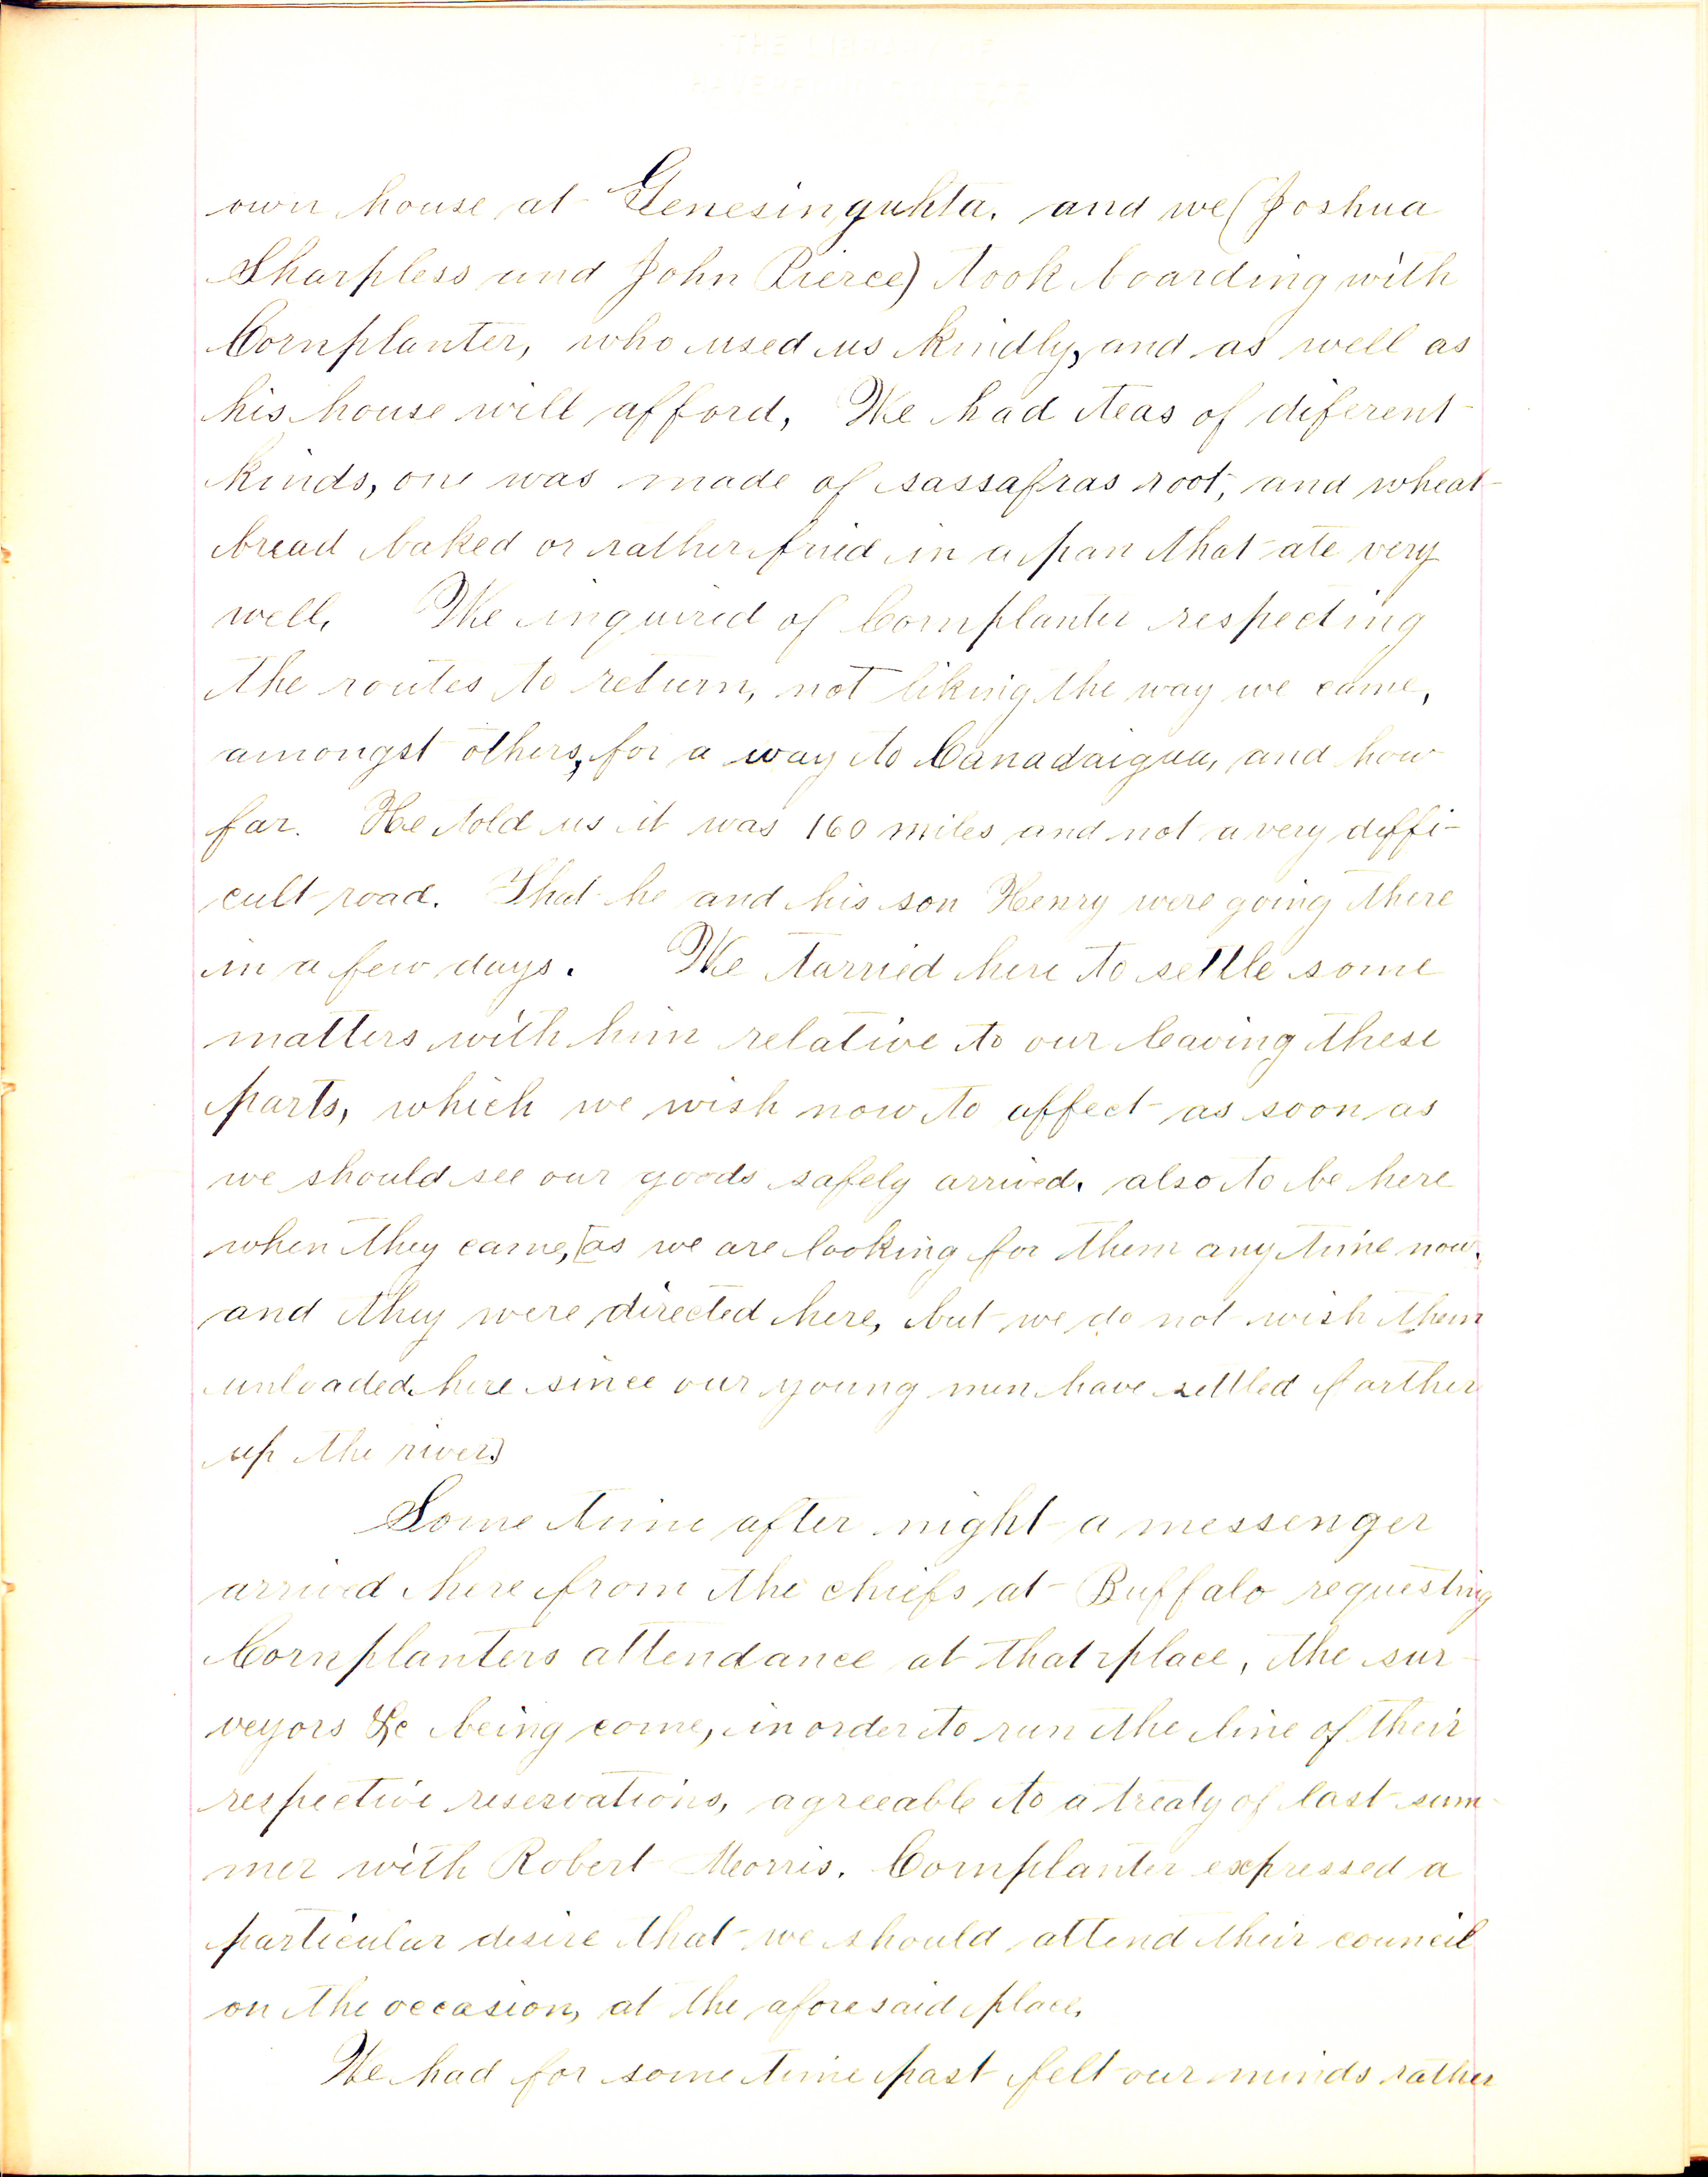 own house at Genesinguhta. and we (Joshua
Sharpless and John Pierce) took boarding with
Cornplanter, who used us kindly, and as well as
his house will afford, We had teas of diferent
kinds, one was made of sassafras root, and wheat
bread baked or rather fried in a pan that ate very
well. We inquired of Cornplanter respecting
the routes to return, not liking the way we came,
amongst others, for a way to Canadaigua, and how
far. He told us it was 160 miles and not a very diffi-
cult road. That he and his son Henry were going there
in a few days. We tarried here to settle some
matters with him relative to our leaving these
parts, which we wish now to affect as soon as
we should see our goods safely arrived. also to be here
when they came, [as we are looking for them any time now.
and they were directed here, but we do not wish them
unloaded here since our young men have settled farther
up the river]
Some time after night a messenger
arrived here from the chiefs at Buffalo requesting
Cornplanters attendance at that place, the sur-
veyors &c being come, in order to run the line of their
respective reservations, agreeable to a treaty of last sum-
mer with Robert Morris. Cornplanter expressed a
particular desire that we should attend their council
on the occasion, at the aforesaid place.
We had for some time past felt our minds rather